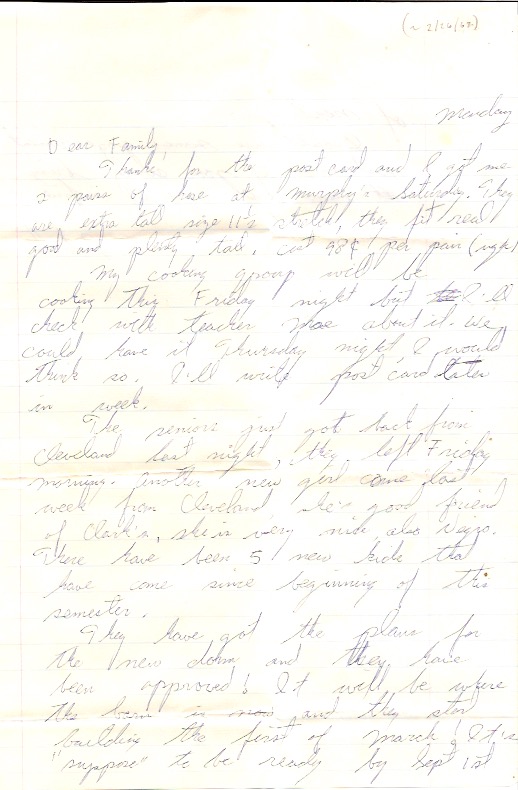 (~ 2/26/62)
Monday
Dear Family,
Thanks for the post card and I got me
2 pairs of hose at Murphy's Saturday. They
are extra tall size 11's stretch, they fit real
good and plenty tall, cost 98¢ per pair (ugh)
My cooking group will be
cooking this Friday night but I'll
check with teacher about it. We
could have it Thursday night, I would
think so. I'll write post card later
in week.
The seniors just got back from
Cleveland last night, they left Friday
morning. Another new girl came last
week from Cleveland she's good friend
of Clark's, she is very nice, also
There have been 5 new kids that
have come since beginning of this
semester.
They have got the plans for
the new dorm and they have
been approved! It will be where
the barn is now and they start
building the first of March! It's
"suppose" to be ready by Sept 1st